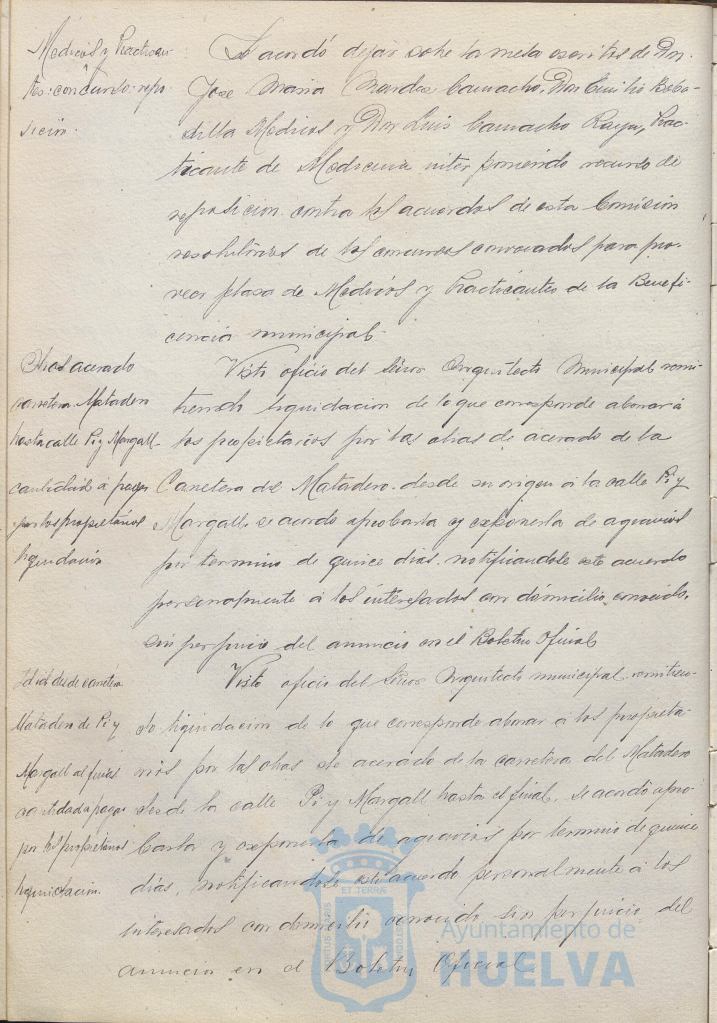 Médicos y Practican-
tes: concurso: repo-
sición.
Se acordó dejar sobre la mesa escritos de Dn.
José María Camacho, Don Emilio Boba-
dilla Medicos y Don Luis Camacho Prac-
ticante de Medicina interponiendo recurso de
reposicion contra los acuerdos de esta Comision
resolutorios de los concursos convocados para pro-
veer plasa de Medicos y Practicantes de la Benefi-
cencia municipal.
Obras acerado
carretera Matadero
hasta calle Pi y Margall
cantidad a pagar
por los propietarios
liquidación
Visto oficio del Señor Arquitecto Municipal remi-
tiendo liquidacion de lo que corresponde abonar á
los propietarios por las obras de acerado de la
Carretera del Matadero desde su origen á la calle Pi y
Margall, se acordó aprobarla y exponerla de agravios
por termino de quince dias, notificandole este acuerdo
personalmente á los interesados con domicilio conocido,
sin perjuicio del anuncio en el Boletin Oficial
Id id de carretera
Matadero de Pi y
Margall al final
cantidad a pagar
por los propietarios
liquidacion.
Visto oficio del Señor Arquitecto municipal remitien-
do liquidacion de lo que corresponde abonar á los propieta-
rios por las obras de acerado de la carretera del Matadero
desde la calle Pi y Margall hasta el final, se acordó apro-
barla y exponerla de agravios por termino de quince
dias, notificandole este acuerdo personalmente á los
interesados con domicilio conocido sin perjuicio del
anuncio en el Boletin Oficial.
ET TERRÆ
Ayuntamiento de
HUELVA